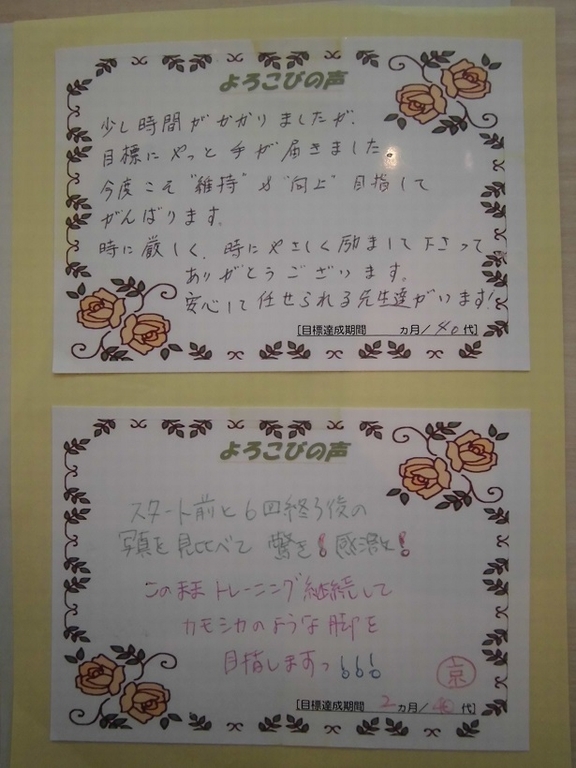 よろこびの声
少し時間がかかりましたが、
目標にやっと手が届きました。
今度こそ"維持"や"向上"目指して
がんばります。
時に厳しく、時にやさしく励まして下さって
ありがとうございます。
安心して任せられる先生達がいます!
[目標達成期間 ヵ月/40代]
よろこびの声
スタート前と6回終了後の
写真を見比べて 驚き!感激!
このままトレーニング継続して
カモシカのような脚を
目指しますっ
京
[目標達成期間 2ヵ月/40代]